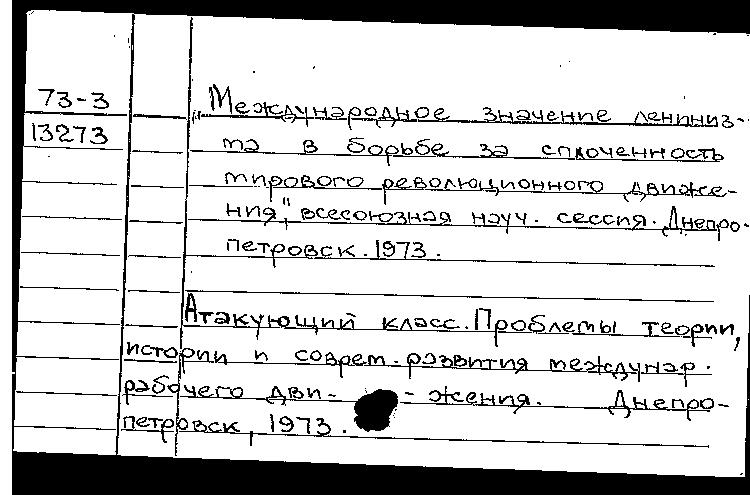 73-3
13273
„Международное значение лениниз-
ма в борьбе за сплоченность
мирового революционного движе-
ния", всесоюзная науч. сессия. Днепро-
петровск. 1973.
Атакующий класс. Проблемы теории,
истории и соврем. развития междунар.
рабочего дви- - жения. Днепро-
петровск, 1973.